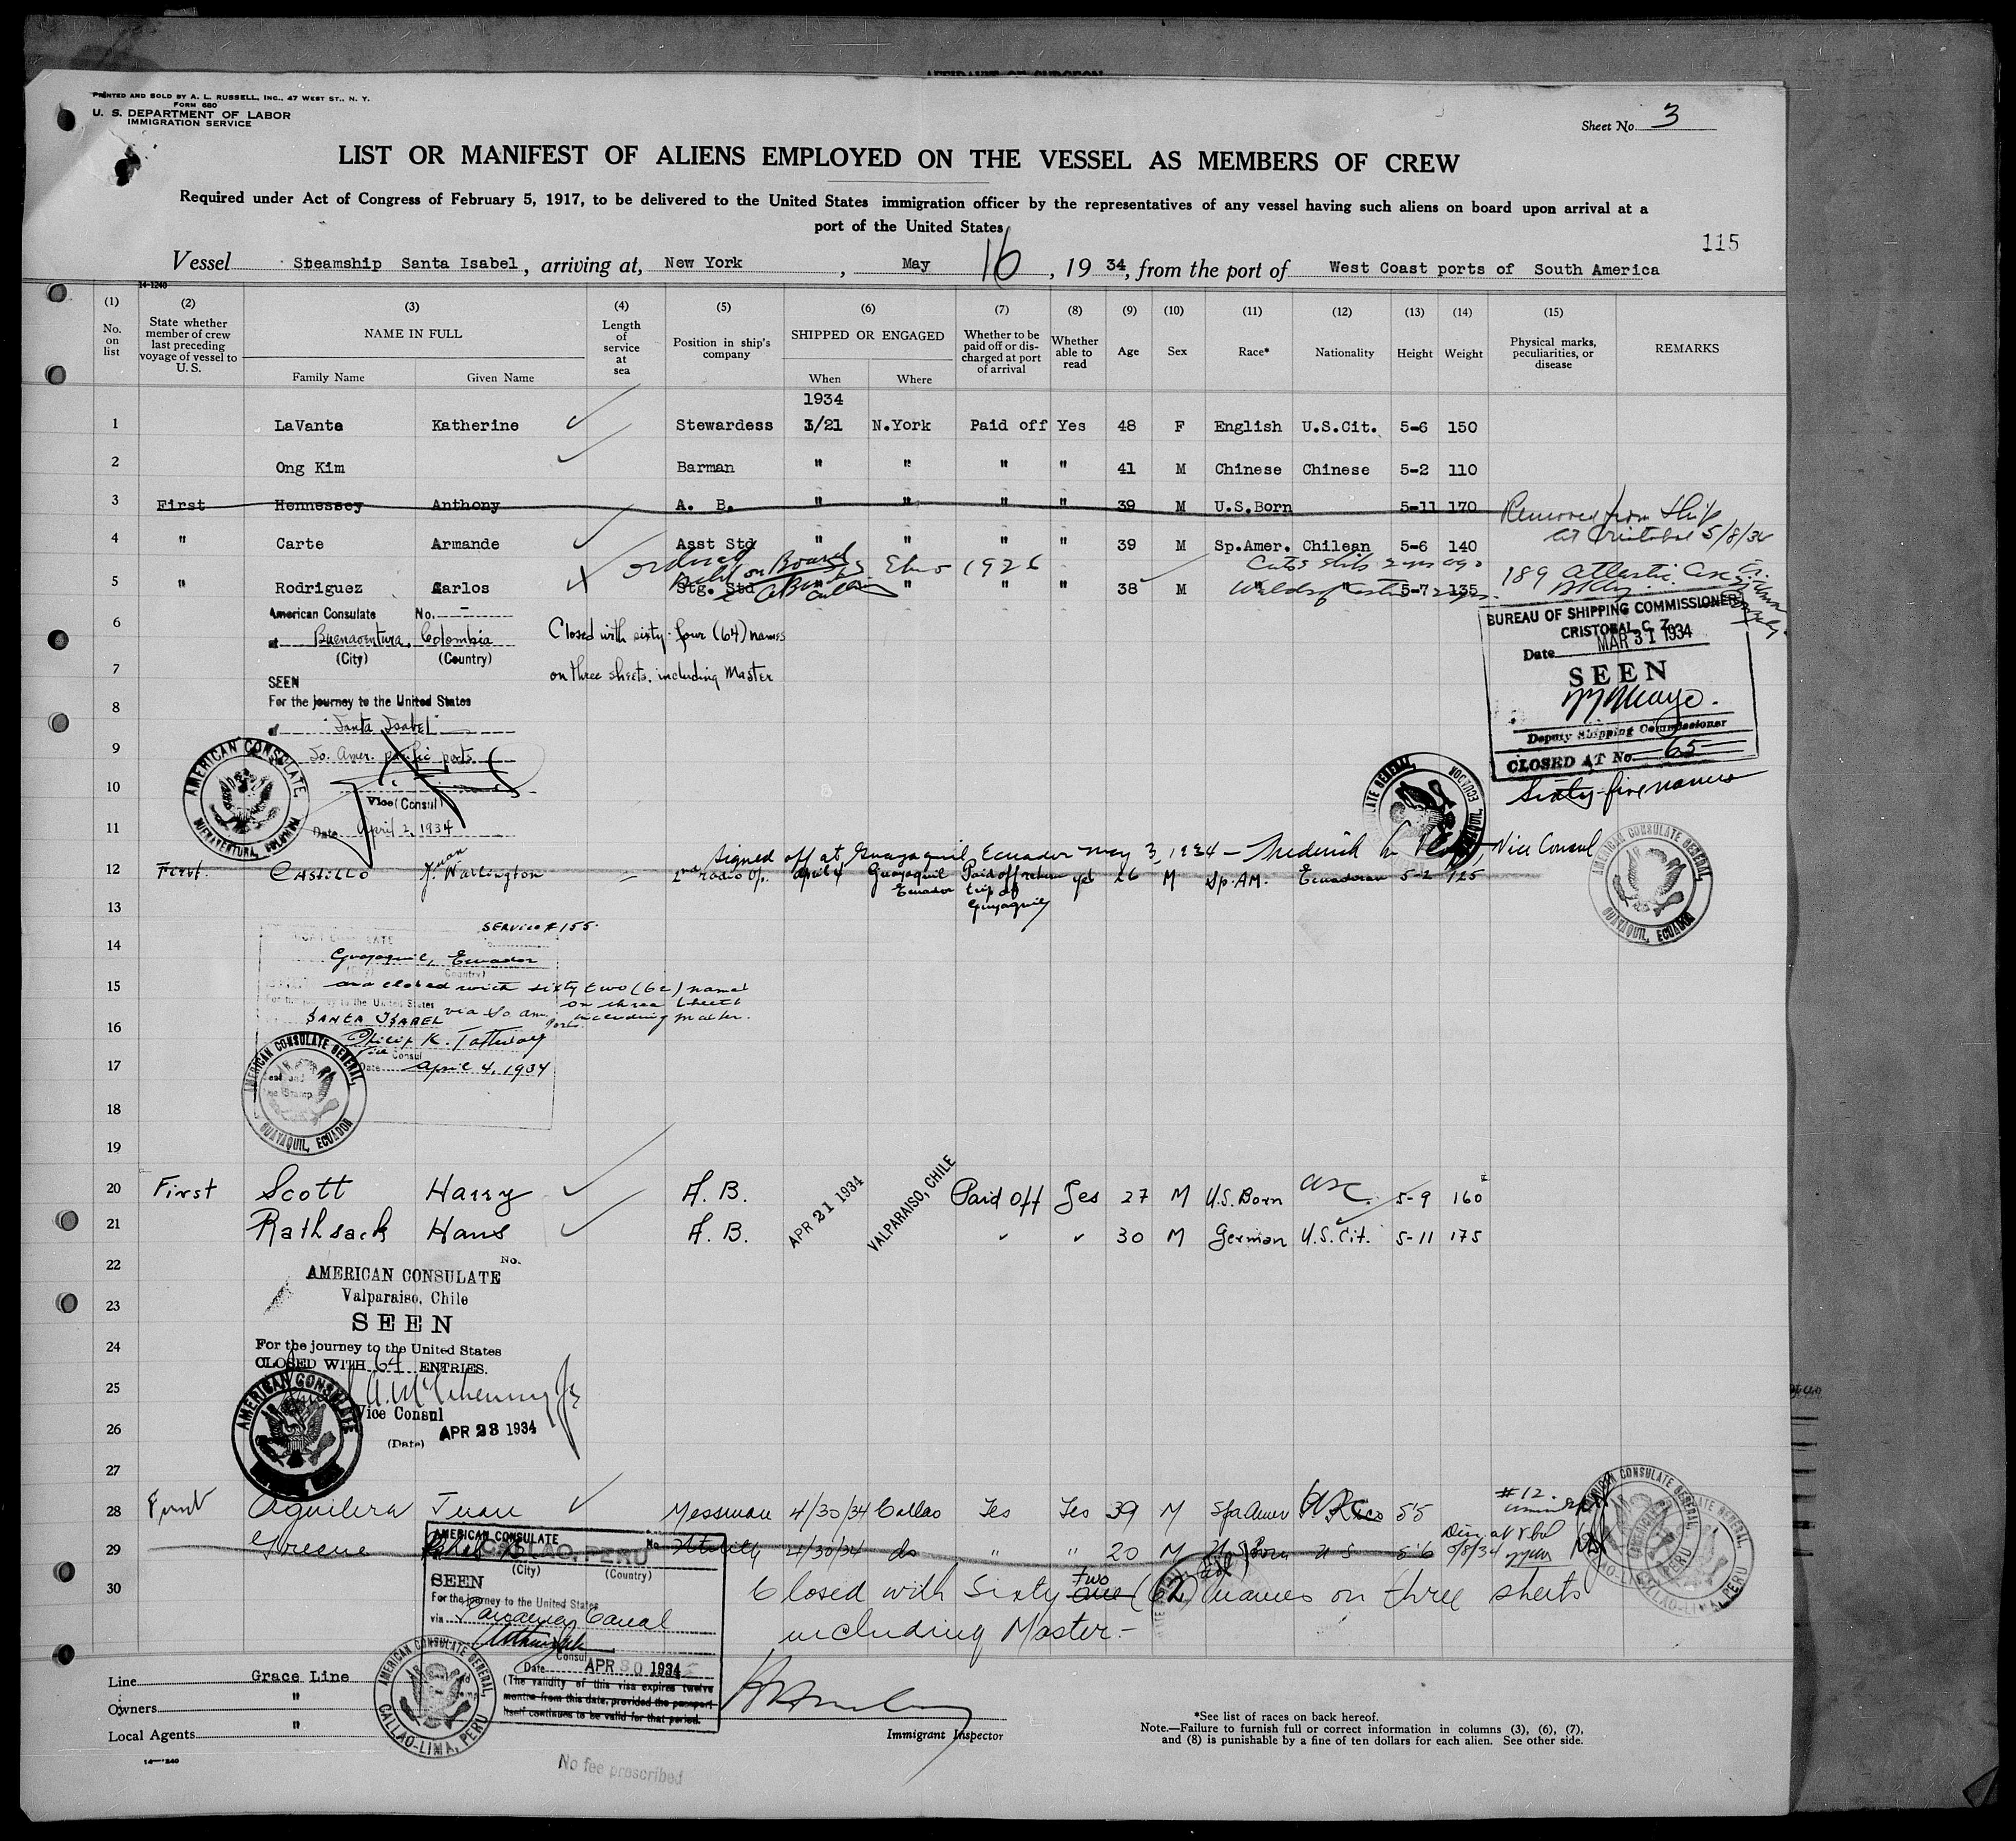 PRINTED AND SOLD BY A. L. RUSSELL, INC., 47 WEST ST., N. Y.
FORM 680
U. S. DEPARTMENT OF LABOR
IMMIGRATION SERVICE
Sheet No. 3
LIST OR MANIFEST OF ALIENS EMPLOYED ON THE VESSEL AS MEMBERS OF CREW
Required under Act of Congress of February 5, 1917, to be delivered to the United States immigration officer by the representatives of any vessel having such aliens on board upon arrival at a
port of the United States
115
Vessel Steamship Santa Isabel, arriving at, New York, May 16, 1934, from the port of West Coast ports of South America
14-1240
(1) (2) (3) (4) (5) (6) (7) (8) (9) (10) (11) (12) (13) (14) (15)
No. on list
State whether member of crew last preceding voyage of vessel to U. S.
NAME IN FULL
Family Name Given Name
Length of service at sea
Position in ship's company
SHIPPED OR ENGAGED
When Where
Whether to be paid off or discharged at port of arrival
Whether able to read
Age Sex Race* Nationality Height Weight
Physical marks, peculiarities, or disease
REMARKS
1934
1 LaVante Katherine Stewardess 3/21 N.York Paid off Yes 48 F English U.S.Cit. 5-6 150
2 Ong Kim Barman " " " " 41 M Chinese Chinese 5-2 110
3 First Hennessey Anthony A. B. " " " " 39 M U.S.Born 5-11 170 Removed from Ship
at Cristobal 5/8/34
4 " Carte Armande Asst Std " " " " 39 M Sp.Amer. Chilean 5-6 140
ordered
Held on Board 1926
5 " Rodriguez Carlos Stg. Std " " " 38 M " " 5-7 135
189 Atlantic Ave
American Consulate No. -
at Buenaventura, Colombia
(City) (Country)
SEEN
For the journey to the United States
of "Santa Isabel"
So. Amer. pacific ports
Vice (Consul)
Date April 2, 1934
AMERICAN CONSULATE
BUENAVENTURA, COLOMBIA
6 Closed with sixty-four (64) names
7 on three sheets, including Master
BUREAU OF SHIPPING COMMISSIONER
CRISTOBAL C. Z.
Date MAR 31 1934
SEEN
Deputy Shipping Commissioner
CLOSED AT No. 65
Sixty-five names
8
9
10
11
Signed off at Guayaquil Ecuador May 3, 1934 - Frederick Vice Consul
12 First. Castillo J. Juan Warlington - 2nd radio Op. April 4 Guayaquil Ecuador Paid off return trip at Guayaquil yes 26 M Sp. AM. Ecuadorean 5-2 125
AMERICAN CONSULATE GENERAL,
GUAYAQUIL, ECUADOR
13
SERVICE # 155.
14 Guayaquil, Ecuador
(Country)
15 and closed with sixty two (62) names
on three sheets
For the journey to the United States
16 SANTA ISABEL via So. Am. Ports including master.
Philip K. Tattersall
Vice Consul
17 Date April 4, 1934
AMERICAN CONSULATE GENERAL,
GUAYAQUIL, ECUADOR
18
19
20 First Scott Harry A. B. APR 21 1934 VALPARAISO, CHILE Paid Off Yes 27 M U.S. Born USC 5-9 160
21 Rathsack Hans A. B. 30 M German U.S. Cit. 5-11 175
22
No.
AMERICAN CONSULATE
Valparaiso, Chile
23
SEEN
24
For the journey to the United States
CLOSED WITH 64 ENTRIES.
25
Vice Consul
26
(Date) APR 23 1934
AMERICAN CONSULATE
27
28 First Aguilera Juan Messman 4/30/34 Callao Yes Yes 39 M Sp Amer 5'5 #12.
29 Greene Utility 4/30/34 do " " 20 M U S Born U S 5'6
5/8/34
AMERICAN CONSULATE
CALLAO, PERU No.
(City) (Country)
SEEN
For the journey to the United States
via Panama Canal
Consul
Date APR 30 1934
(The validity of this visa expires twelve
months from this date, provided the passport
itself continues to be valid for that period.
30 Closed with Sixty one two (62) names on three sheets
including Master. -
AMERICAN CONSULATE GENERAL,
CALLAO-LIMA, PERU
Line Grace Line
Owners "
Local Agents "
Immigrant Inspector
*See list of races on back hereof.
Note.—Failure to furnish full or correct information in columns (3), (6), (7),
and (8) is punishable by a fine of ten dollars for each alien. See other side.
No fee prescribed